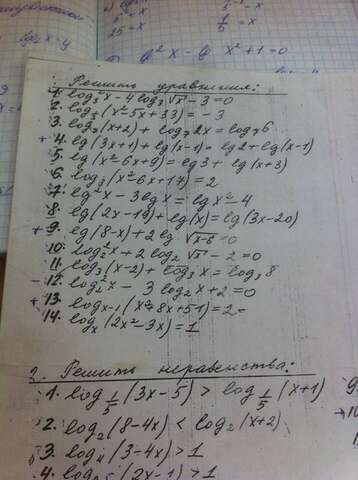 lg²x - lg x² + 1 = 0
Решить уравнения:
1. log₃²x - 4log₃√x - 3 = 0
2. log₁/₃(x² - 5x + 33) = -3
3. log₇(x+2) + log₇2x = log₇6
4. lg(3x+1) + lg(x-1) = lg2 + lg(x-1)
5. lg(x² - 6x + 9) = lg3 + lg(x+3)
6. log₃(x² - 6x + 17) = 2
7. lg²x - 3lgx = lgx² - 4
8. lg(2x-19) + lg(x) = lg(3x-20)
+ 9. lg(8-x) + 2lg√(x-6) = 0
10. log₂²x + 2log₂√x - 2 = 0
11. log₃(x-2) + log₃x = log₃8
12. log₂²x - 3log₂x + 2 = 0
13. logₓ₋₁(x² + 8x + 51) = 2
14. logₓ(2x² - 3x) = 1
2. Решить неравенства:
1. log₁/₅(3x-5) > log₁/₅(x+1)
2. log₂(8-4x) < log₂(x+2)
3. log₄(3-4x) > 1